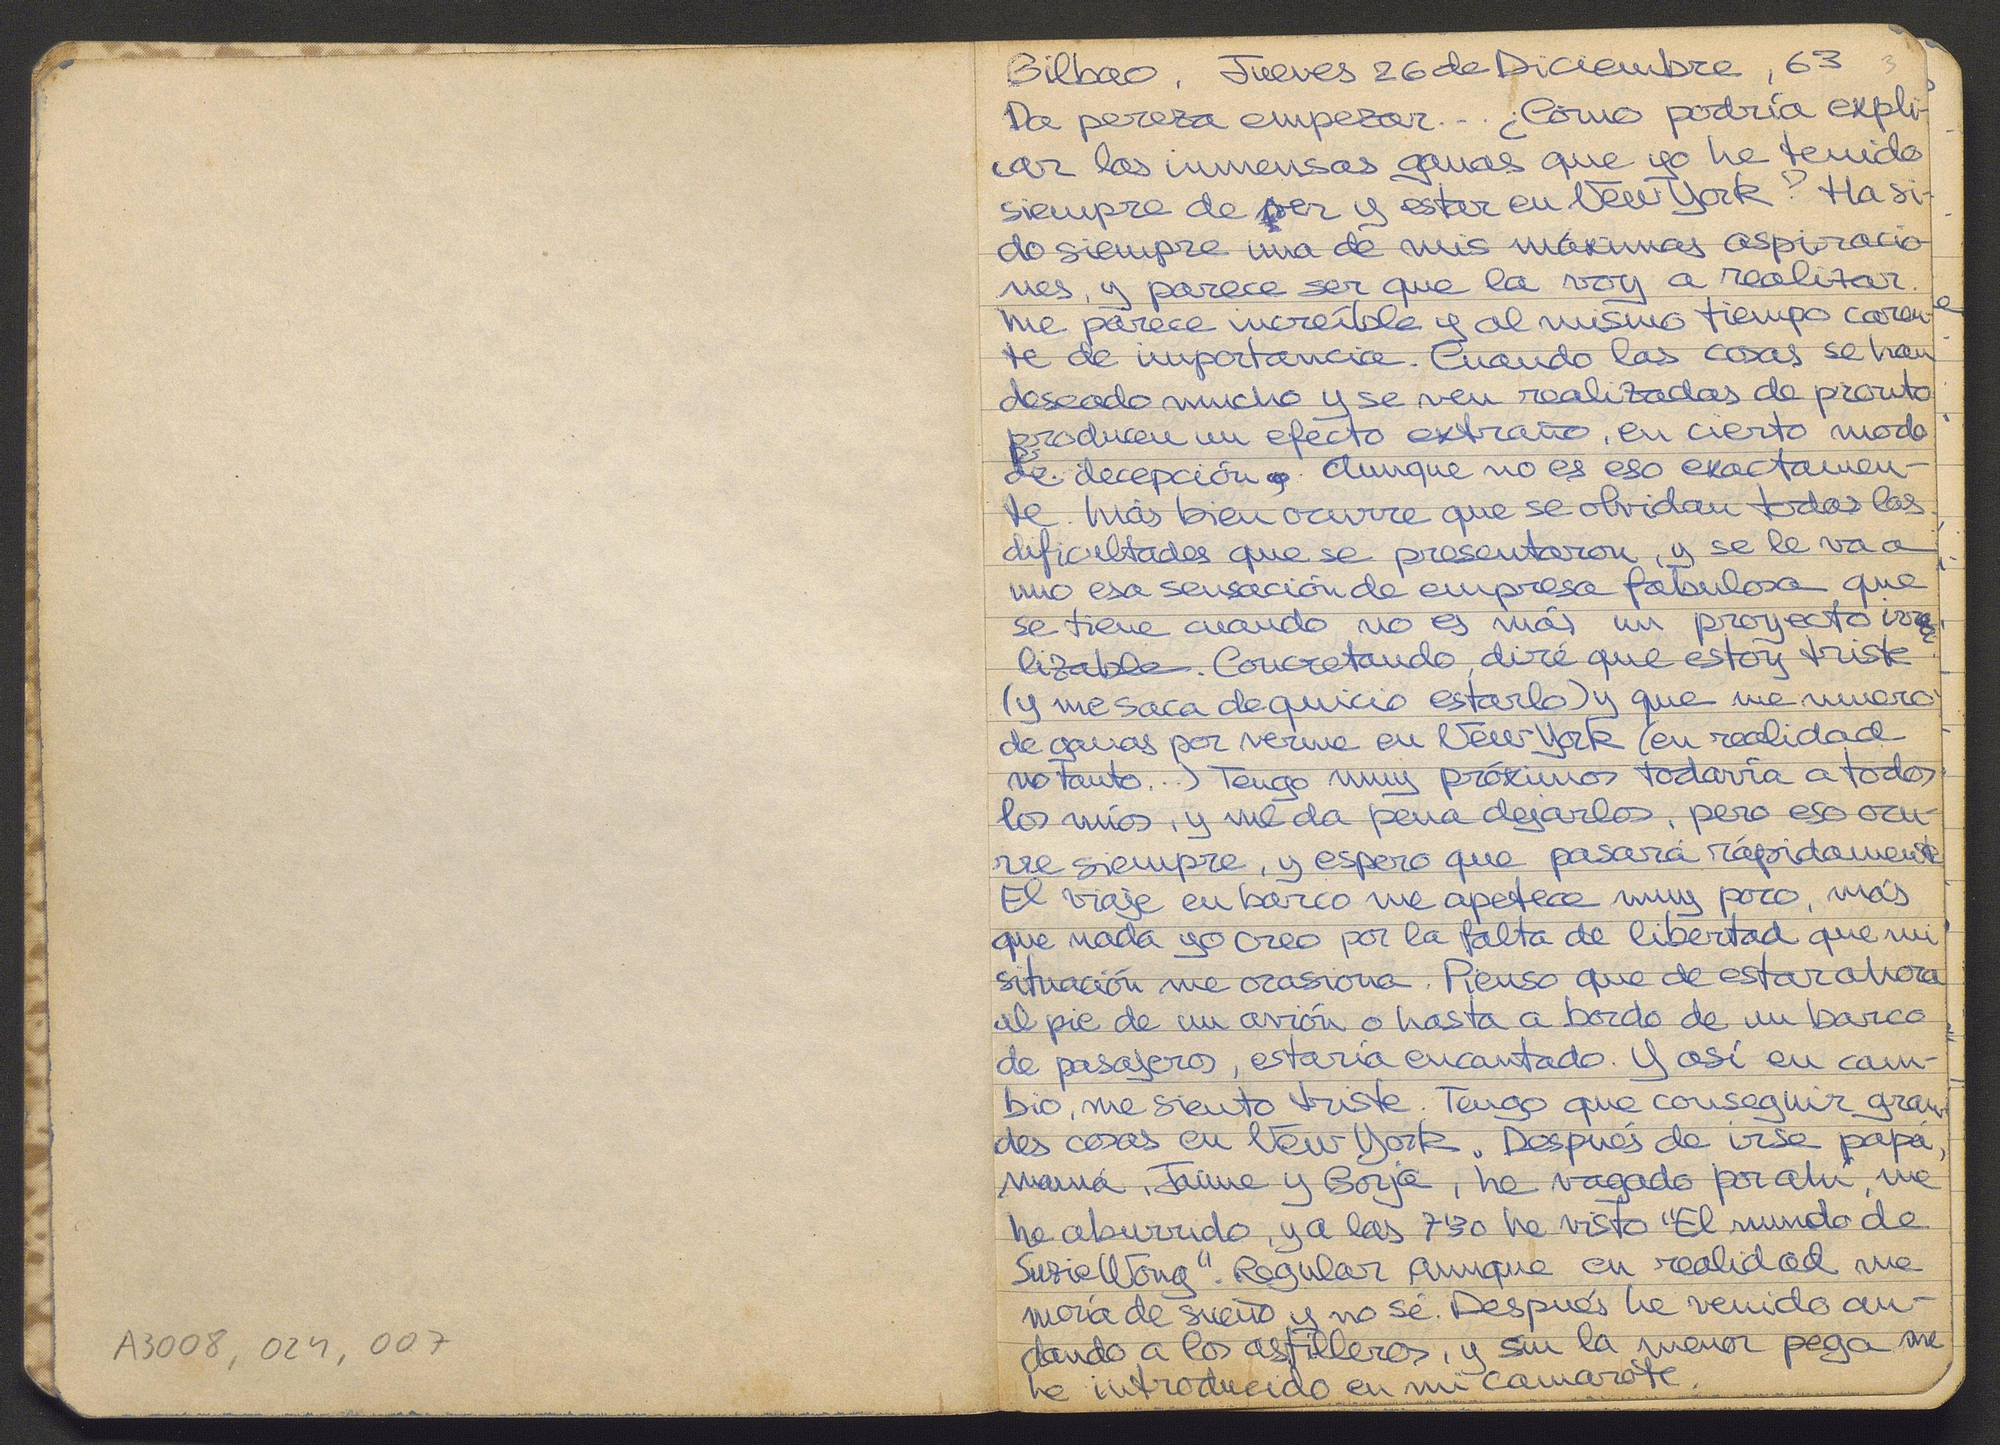 A3008, 024, 007
Bilbao, Jueves 26 de Diciembre, 63
3
Da pereza empezar... ¿Cómo podría expli-
car las inmensas ganas que yo he tenido
siempre de ver y estar en New York? Ha si-
do siempre una de mis máximas aspiracio-
nes, y parece ser que la voy a realizar.
Me parece increíble y al mismo tiempo caren-
te de importancia. Cuando las cosas se han
deseado mucho y se ven realizadas de pronto
producen un efecto extraño, en cierto modo
de decepción. Aunque no es eso exactamen-
te. Más bien ocurre que se olvidan todas las
dificultades que se presentaron, y se le va a
uno esa sensación de empresa fabulosa que
se tiene cuando no es más un proyecto irrea
lizable. Concretando, diré que estoy triste
(y me saca de quicio estarlo) y que me muero
de ganas por verme en New York (en realidad
no tanto...) Tengo muy próximos todavía a todos
los míos, y me da pena dejarlos, pero eso ocu-
rre siempre, y espero que pasará rápidamente
El viaje en barco me apetece muy poco, más
que nada yo creo por la falta de libertad que mi
situación me ocasiona. Pienso que de estar ahora
al pie de un avión o hasta a bordo de un barco
de pasajeros, estaría encantado. Y así en cam-
bio, me siento triste. Tengo que conseguir gran-
des cosas en New York. Después de irse papá,
mamá, Jaime y Borja, he vagado por ahí, me
he aburrido, y a las 7'30 he visto "El mundo de
Suzie Wong". Regular aunque en realidad me
moría de sueño y no sé. Después he venido an-
dando a los astilleros, y sin la menor pega me
he introducido en mi camarote.